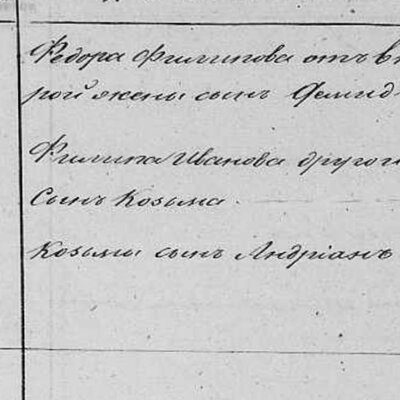 Федора Филипова отъ в
рой жены сынъ Фемид
Филипа Иванова другой
Сынъ Козьма.
Козьмы сынъ Андріанъ